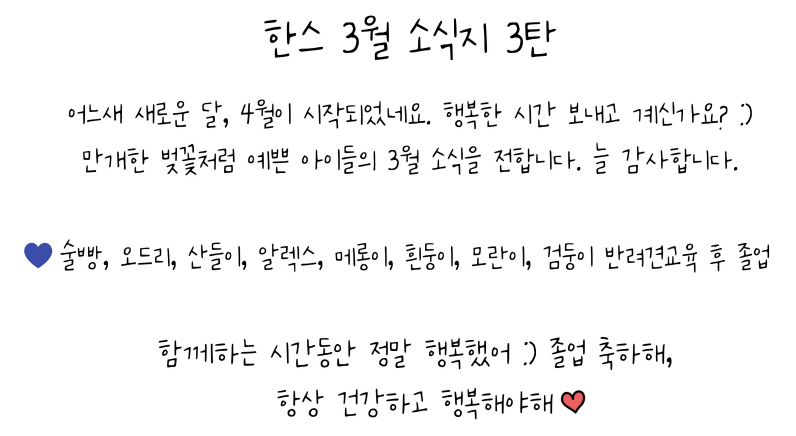 한스 3월 소식지 3탄
어느새 새로운 달, 4월이 시작되었네요. 행복한 시간 보내고 계신가요? :)
만개한 벚꽃처럼 예쁜 아이들의 3월 소식을 전합니다. 늘 감사합니다.
술빵, 오드리, 산들이, 알렉스, 메롱이, 흰둥이, 모란이, 검둥이 반려견교육 후 졸업
함께하는 시간동안 정말 행복했어 :) 졸업 축하해,
항상 건강하고 행복해야해